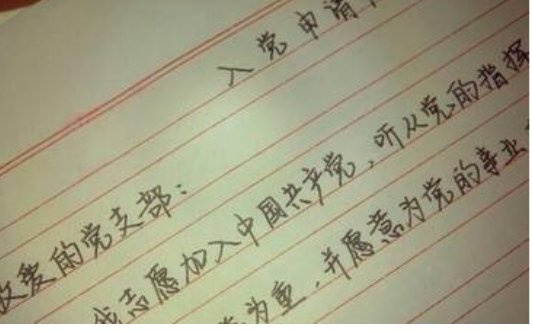 入党申请
敬爱的党支部:
我志愿加入中国共产党,听从党的指挥
为重,并愿意为党的事业